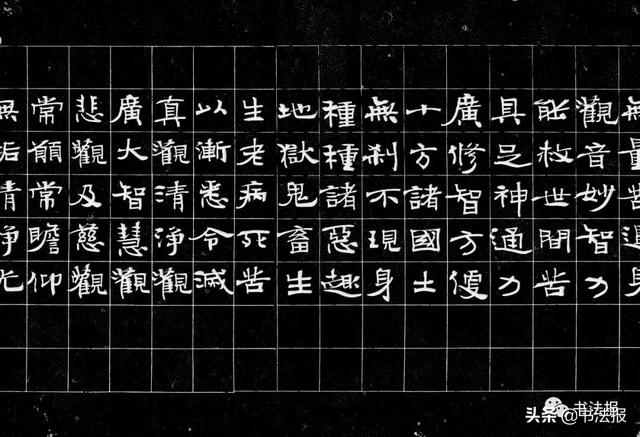 無量苦逼身
觀音妙智力
能救世間苦
具足神通力
廣修智方便
十方諸國土
無刹不現身
種種諸惡趣
地獄鬼畜生
生老病死苦
以漸悉令滅
真觀清淨觀
廣大智慧觀
悲觀及慈觀
常願常瞻仰
無垢清淨光
书法报
头条 @书法报